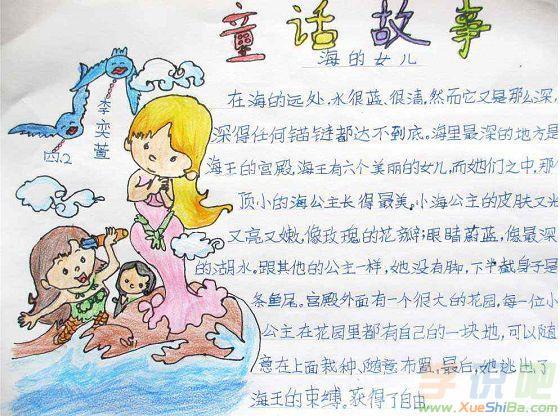 童话故事
海的女儿
李奕萱
四.2
在海的远处,水很蓝、很清,然而它又是那么深,
深得任何锚链都达不到底。海里最深的地方是
海王的宫殿,海王有六个美丽的女儿,而她们之中,那
顶小的海公主长得最美,小海公主的皮肤又光
又亮又嫩,像玫瑰的花瓣;眼睛蔚蓝,像最深
的湖水,跟其他的公主一样,她没有脚,下半截身子是
条鱼尾。宫殿外面有一个很大的花园,每一位小
公主在花园里都有自己的一块地,可以随
意在上面栽种、随意布置,最后,她逃出了
海王的束缚。获得了自由
学识吧
www.XueShiBa.com